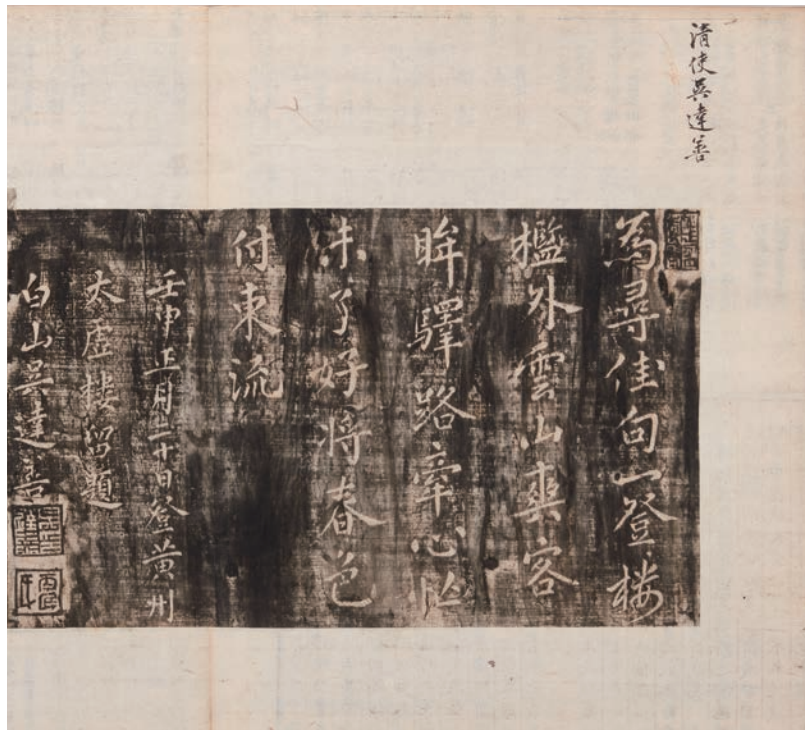 清使吳達善
為尋佳句一登樓
檻外雲山爽客
眸驛路牽心忙
未了好將春色
付東流
壬申正月二十日登黃州
太虛樓留題
白山吳達善